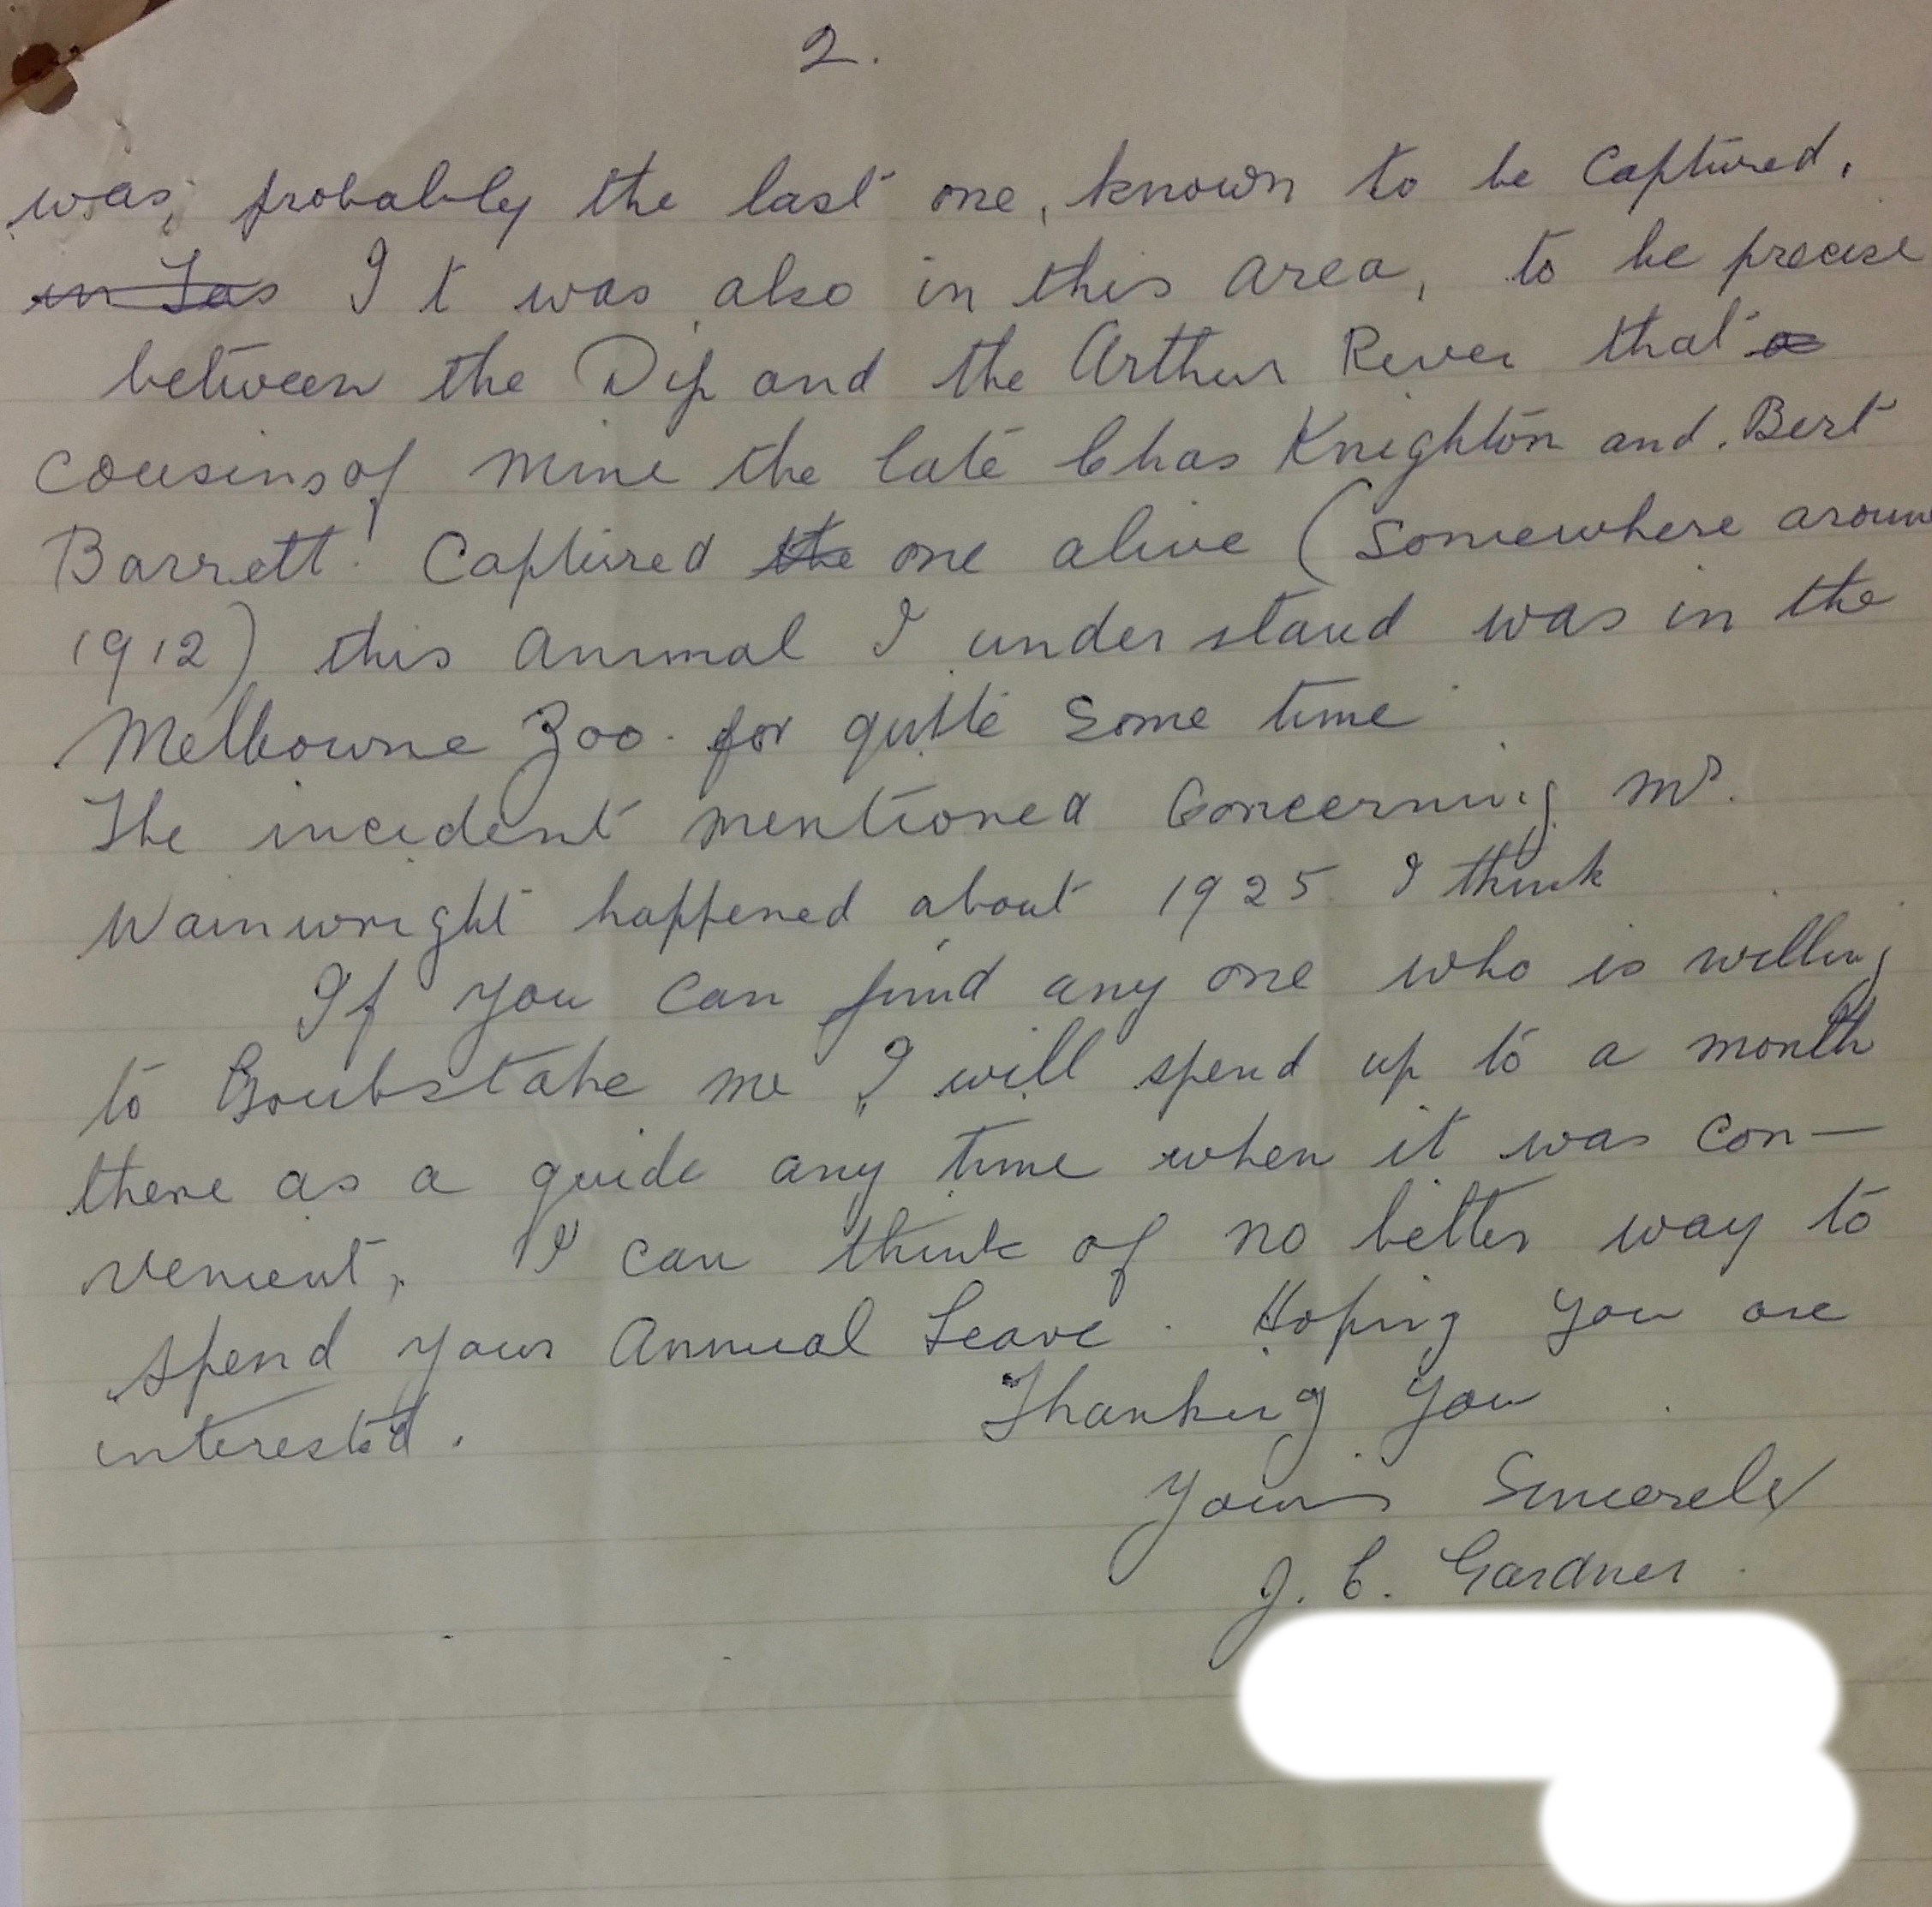 2.
was, probably the last one, known to be Captured.
in Tas I t was also in this area, to be precise
between the Dip and the Arthur River that a
Cousins of mine the late Chas Knighton and. Bert
Barrett. Captured the one alive (Somewhere aroun
1912) this animal I under stand was in the
Melbourne Zoo. for quite some time
The incident mentioned Concerning Mr.
Wainwright happened about 1925. I think
If you can find any one who is willing
to Groubstake me, I will spend up to a month
there as a guide any time when it was con—
venient, I can think of no better way to
spend your Annual Leave. Hoping you are
interested.
Thanking you
Yours Sincerely
J. C. Gardner.